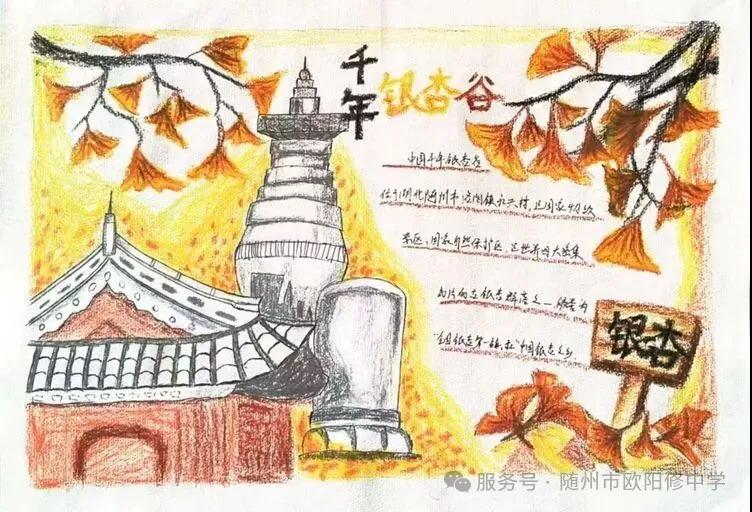 千年
银杏谷
中国千年银杏谷
位于湖北随州市洛阳镇永兴村,是国家4A级
景区,国家自然保护区,是世界四大密集
成片的古银杏群落之一,被誉为
"全国银杏第一镇 "中国银杏之乡
银杏
服务号 · 随州市欧阳修中学